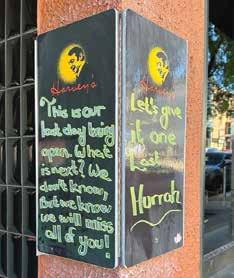 Harvey's
This is our
last day being
open. What
is next? We
don't know,
But we know
we will miss
all of you!
Harvey's
Let's give
it one
Last
Hurrah